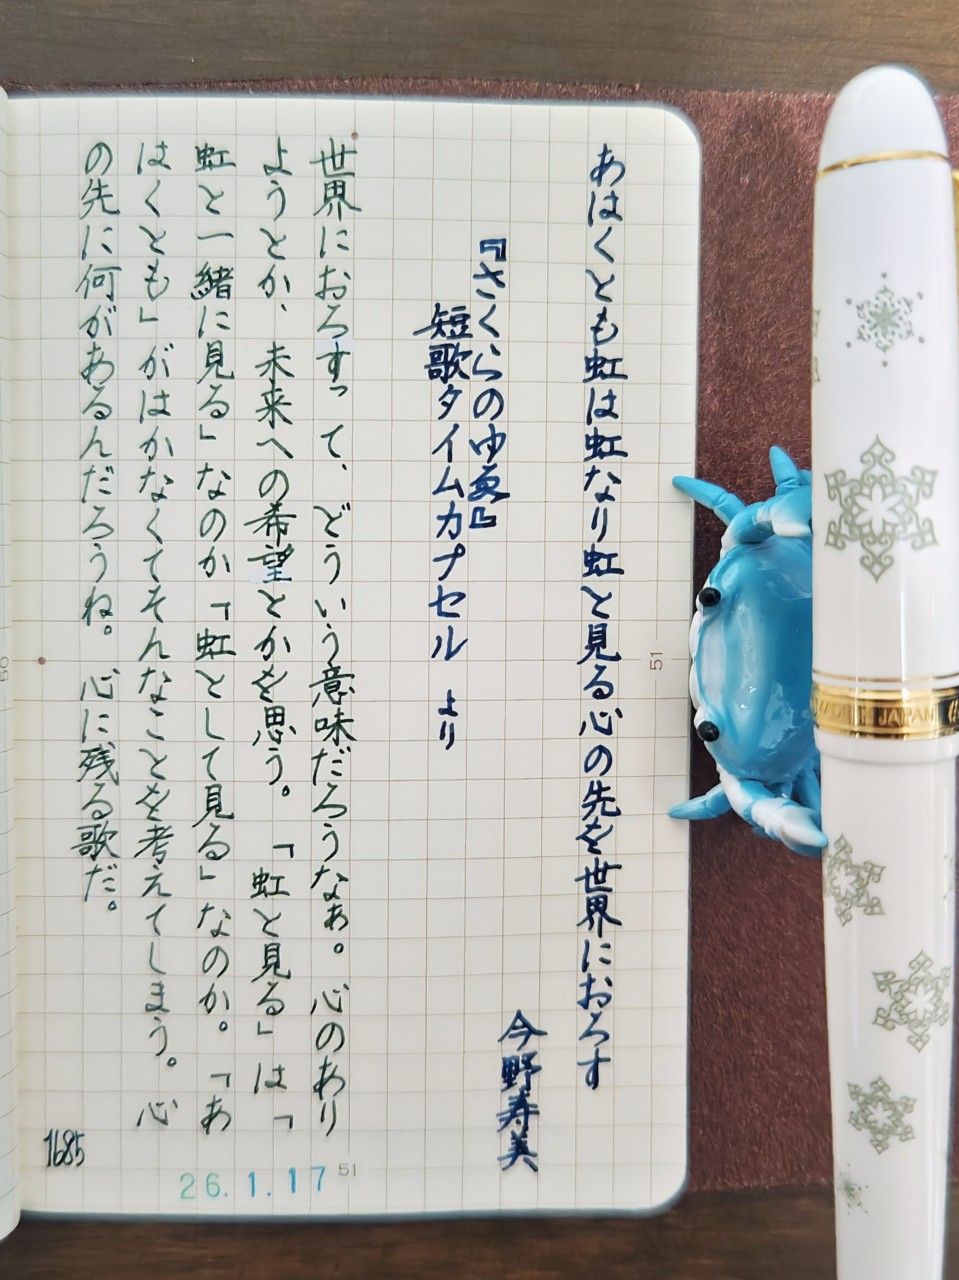 あはくとも虹は虹なり虹と見る心の先を世界におろす
今野寿美
『さくらのゆゑ』
短歌タイムカプセル より
世界におろすって、どういう意味だろうなぁ。心のあり
ようとか、未来への希望とかを思う。「虹と見る」は「
虹と一緒に見る」なのか「虹として見る」なのか。「あ
はくとも」がはかなくてそんなことを考えてしまう。心
の先に何があるんだろうね。心に残る歌だ。
1685
26.1.17
51
51
JAPAN